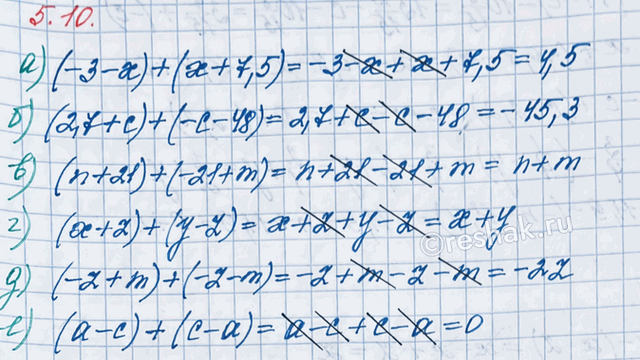 5.10.
а) (-3-x)+(x+7,5)=-3-x+x+7,5=4,5
б) (2,7+c)+(-c-48)=2,7+c-c-48=-45,3
в) (n+21)+(-21+m)=n+21-21+m=n+m
г) (x+z)+(y-z)=x+z+y-z=x+y
©reshak.ru
д) (-z+m)+(-z-m)=-z+m-z-m=-2z
е) (a-c)+(c-a)=a-c+c-a=0